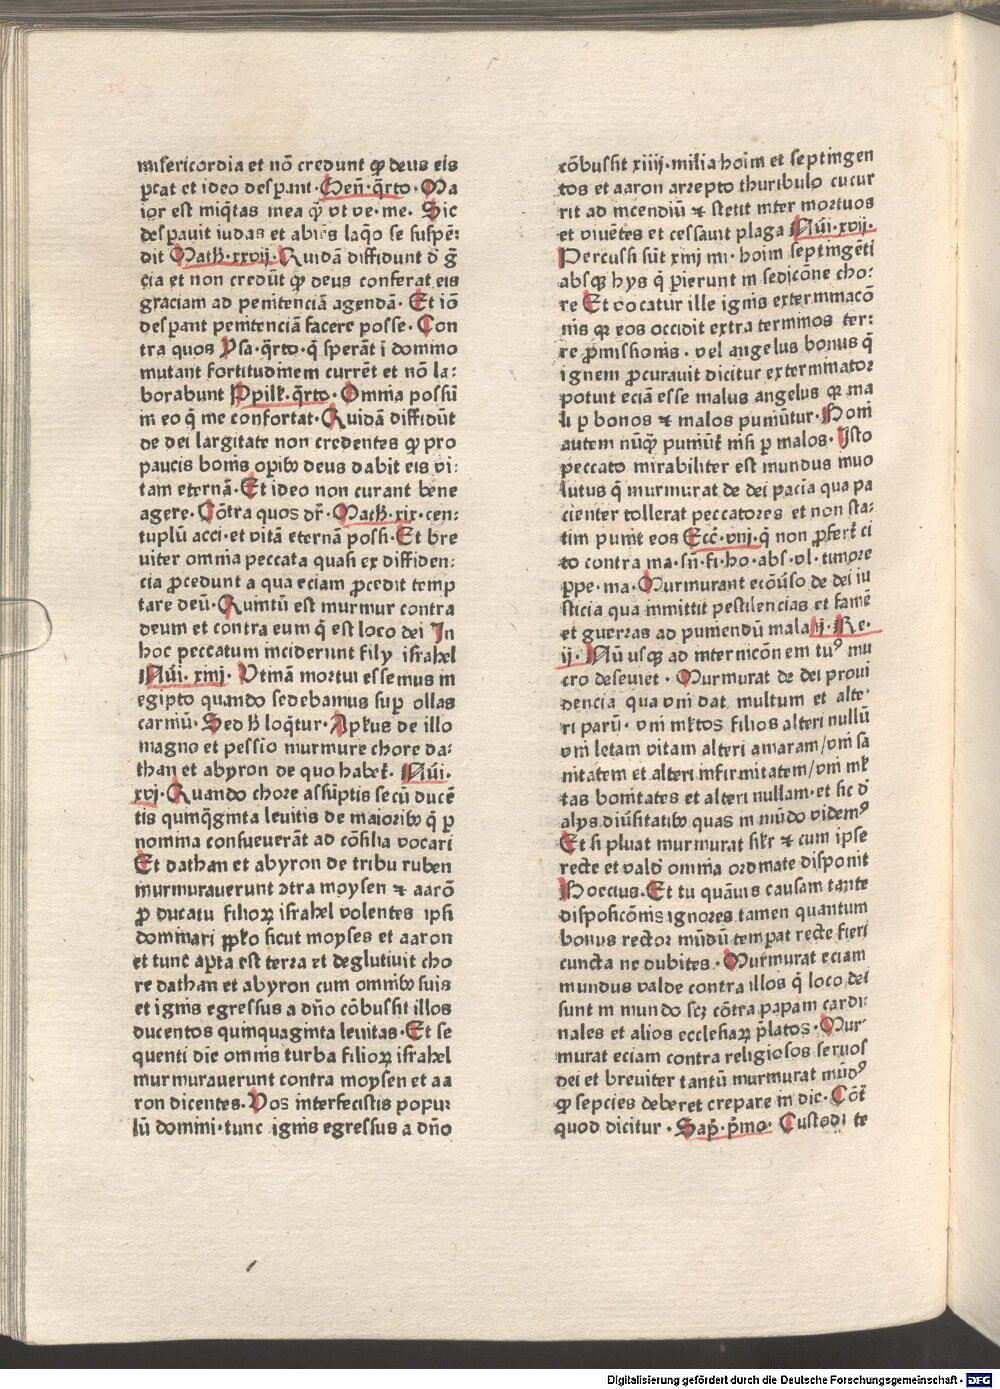 misericordia et nō credunt ꝙ deus eis
ꝑcat et ideo desꝑant · Gen̄ · q̄rto · Ma
ior est miq̄tas mea q̄ vt ve · me · Sic
desꝑauit iudas et abiēs laq̄o se suspē:
dit Math · xxvij · Quidā diffidunt d̄ ḡ
cia et non credūt ꝙ deus conferat eis
graciam ad penitenciā agendā · Et iō
desꝑant penitenciā facere posse · Con
tra quos Ysa · q̄rto · q̄ sperāt ī domino
mutant fortitudinem currēt et nō la:
borabunt Ppilꝫ · q̄rto · Omnia possū
in eo q̄ me confortat · Quidā diffidūt
de dei largitate non credentes ꝙ pro
paucis bonis oꝑibꝰ deus dabit eis vi:
tam eternā · Et ideo non curant bene
agere · Cōtra quos dr̄ · Math · xix · cen:
tuplū acci · et vitā eternā possi · Et bre
uiter omnia peccata quasi ex diffiden:
cia ꝓcedunt a qua eciam ꝓcedit temp
tare deū · Quintū est murmur contra
deum et contra eum q̄ est loco dei In
hoc peccatum inciderunt filij israhel
Nūi · xiiij · Vtinā mortui essemus in
egipto quando sedebamus suꝑ ollas
carniū · Sed h̄ loq̄tur · Apłus de illo
magno et pessio murmure chore da:
than et abyron de quo habet̄ · Nūi ·
xvj · Quando chore assūptis secū ducē
tis quinq̄ginta leuitis de maioribꝰ q̄ ꝑ
nomina consueuerāt ad cōsilia vocari
Et dathan et abyron de tribu ruben
murmurauerunt ꝯtra moysen ⁊ aarō
ꝓ ducatu filioꝝ israhel volentes ipsi
dominari pp̄ło sicut moyses et aaron
et tunc aꝑta est terra et deglutiuit cho
re dathan et abyron cum omnibꝰ suis
et ignis egressus a dn̄o cōbussit illos
ducentos quinquaginta leuitas · Et se
quenti die omnis turba filioꝝ israhel
murmurauerunt contra moysen et aa
ron dicentes · Vos interfecistis popu:
lū domini · tunc ignis egressus a dn̄o
cōbussit xiiij · milia hoim et septingen
tos et aaron arrepto thuribulo cucur
rit ad incendiū ⁊ stetit inter mortuos
et viuētes et cessauit plaga Nūi · xvij ·
Percussi sūt xiiij mi · hoim septingēti
absqꝫ hys q̄ ꝑierunt in sedicōne cho:
re Et vocatur ille ignis exterminacō
nis qꝛ eos occidit extra terminos ter:
re ꝓmissionis · vel angelus bonus q̄
ignem ꝓcurauit dicitur exterminator
potuit eciā esse malus angelus qꝛ ma
li ꝑ bonos ⁊ malos puniūtur · Boni
autem nūq̄ puniūt̄ nisi ꝑ malos · Isto
peccato mirabiliter est mundus inuo
lutus q̄ murmurat de dei pacia qua pa
cienter tollerat peccatores et non sta:
tim punit eos Ecc̄ · viij · q̄ non ꝓfert̄ ci
to contra ma · sn̄ · fi · ho · abs · vl · timore
ꝑpe · ma · Murmurant ecōūso de dei iu
sticia qua inmittit pestilencias et famē
et guerras ad puniendū mala ij · Re ·
ij · Nū usqꝫ ad internicōnem tuꝰ mu
cro deseuiet · Murmurat de dei proui
dencia qua vni dat multum et alte:
ri parū · vni młtos filios alteri nullū
vni letam vitam alteri amaram / vni sa
nitatem et alteri infirmitatem / vni mł
tas bonitates et alteri nullam · et sic d̄
alys diūsitatibꝰ quas in mūdo videmꝰ
Et si pluat murmurat silr̄ ⁊ cum ipse
recte et vald̄ omnia ordinate disponit
Boecius · Et tu quāuis causam tante
disposicōnis ignores tamen quantum
bonus rector mūdū temꝑat recte fieri
cuncta ne dubites · Murmurat eciam
mundus valde contra illos q̄ loco dei
sunt in mundo scꝫ cōtra papam cardi:
nales et alios ecclesiaꝝ p̄latos · Mur:
murat eciam contra religiosos seruos
dei et breuiter tantū murmurat mūdꝰ
ꝙ sepcies deberet crepare in die · Cōt̄
quod dicitur · Sap̄ · p̄mo · Custodi te
Digitalisierung gefördert durch die Deutsche Forschungsgemeinschaft - DFG